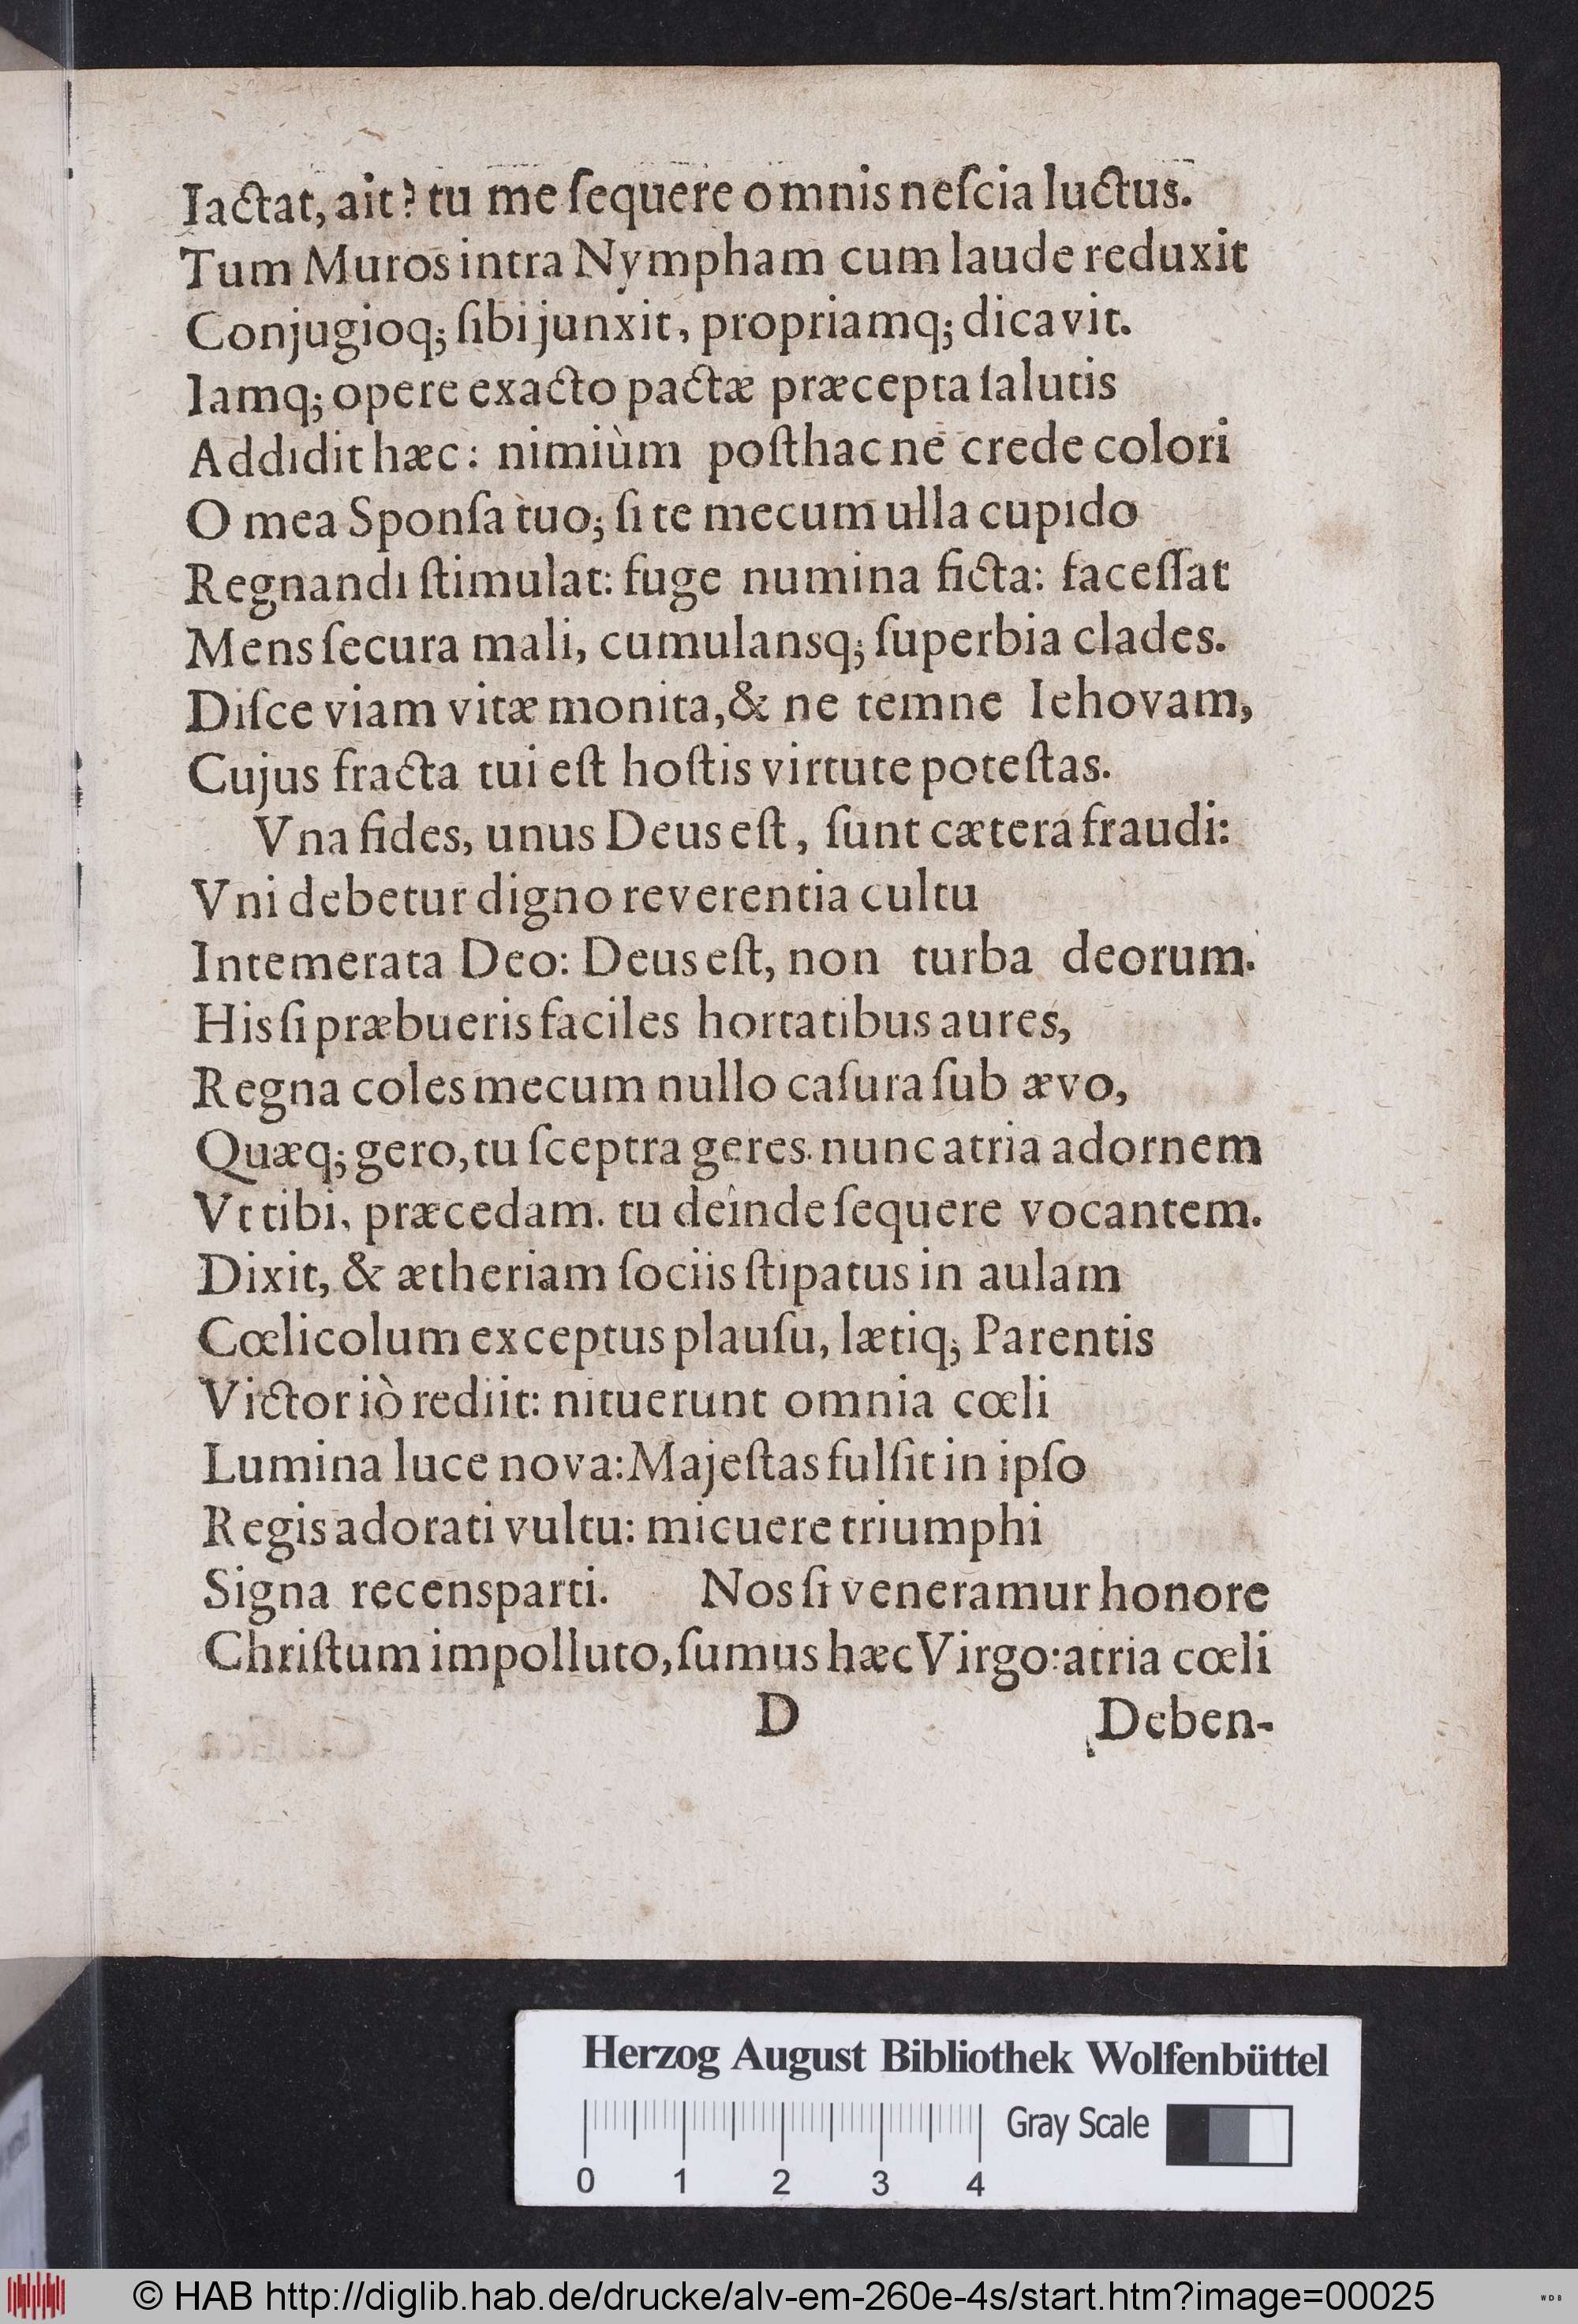 Iactat, ait? tu me ſequere omnis neſcia luctus.
Tum Muros intra Nympham cum laude reduxit
Conjugioq; ſibi junxit, propriamq; dicavit.
Iamq; opere exacto pactæ præcepta ſalutis
Addidit hæc: nimiùm poſthac ne crede colori
O mea Sponſa tuo; ſi te mecum ulla cupido
Regnandi ſtimulat: fuge numina ficta: faceſſat
Mens ſecura mali, cumulansq; ſuperbia clades.
Diſce viam vitæ monita, & ne temne Iehovam,
Cujus fracta tui eſt hoſtis virtute poteſtas.
Vna fides, unus Deus eſt, ſunt cætera fraudi:
Vni debetur digno reverentia cultu
Intemerata Deo: Deus eſt, non turba deorum.
His ſi præbueris faciles hortatibus aures,
Regna coles mecum nullo caſura ſub ævo,
Quæq; gero, tu ſceptra geres. nunc atria adornem
Vt tibi, præcedam. tu deinde ſequere vocantem.
Dixit, & ætheriam ſociis ſtipatus in aulam
Cœlicolum exceptus plauſu, lætiq; Parentis
Victor iò rediit: nituerunt omnia cœli
Lumina luce nova: Majeſtas fulſit in ipſo
Regis adorati vultu: micuere triumphi
Signa recens parti. Nos ſi veneramur honore
Chriſtum impolluto, ſumus hæc Virgo: atria cœli
D Deben-
Herzog August Bibliothek Wolfenbüttel
Gray Scale
0 1 2 3 4
© HAB http://diglib.hab.de/drucke/alv-em-260e-4s/start.htm?image=00025
WDB